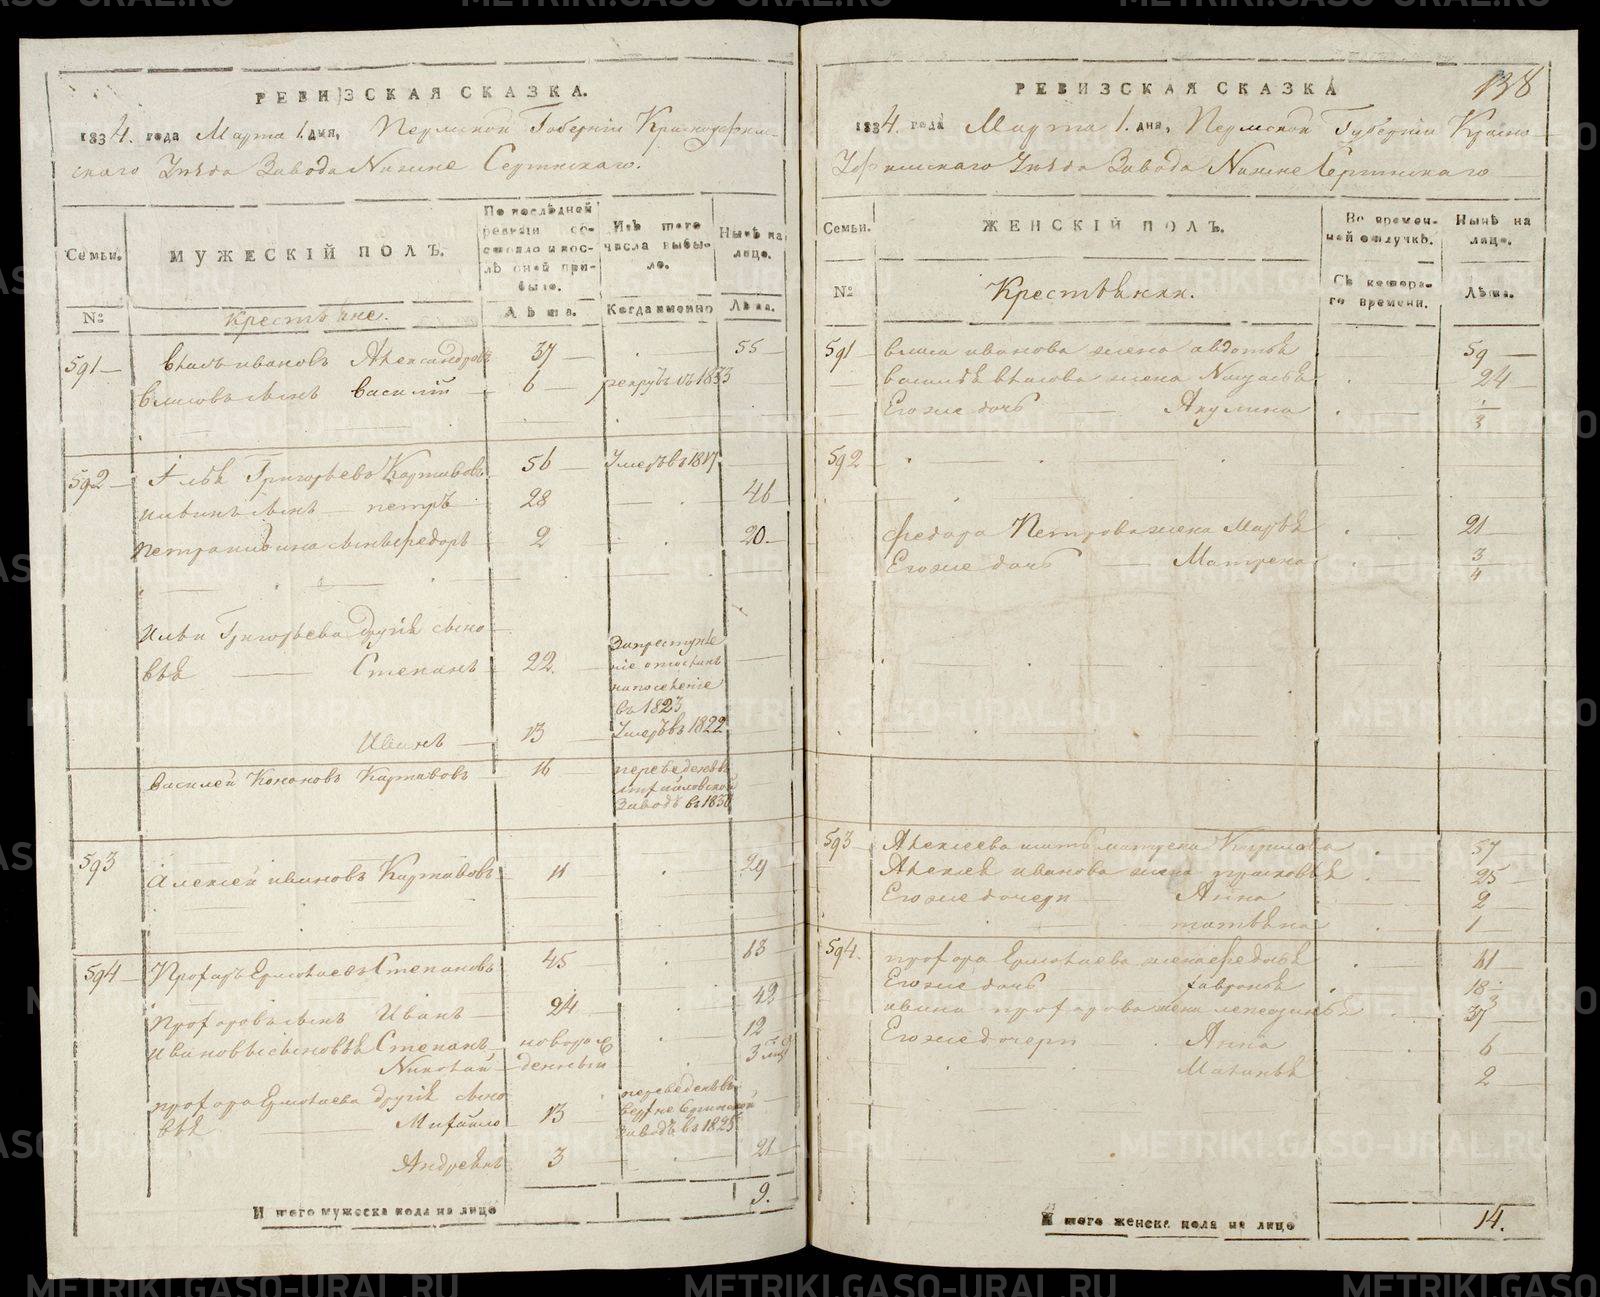 РЕВИЗСКАЯ СКАЗКА.
1834. года Марта 1. дня, Пермской Губернiи Красноуфим-
скаго Уѣзда Завода Нижне Сергинскаго.
Семьи.
МУЖЕСКIЙ ПОЛЪ.
По послѣдней ревизiи состояло и послѣ оной прибыло.
Изъ того числа выбыло.
Нынѣ на лицо.
№
Крестьяне.
Лѣта.
Когда именно
Лѣта.
591 Власъ Ивановъ Александровъ 37 55
Власовъ сынъ Василiй 6 рекрутъ въ 1833
592 Илья Григорьевъ Картавовъ 56 Умеръ въ 1817
Ильинъ сынъ петръ 28 46
Петра Ильина сынъ Федоръ 2 20
Ильи Григорьева другiе сыно
вья Степанъ 22. За преступле
нiе отосланъ
на поселенiе
въ 1823
Иванъ 13 Умеръ въ 1822
Василей Кононовъ Картавовъ 16 переведенъ въ
Михайловской
Заводъ въ 1830
593 Алексей Ивановъ Картавовъ 11 29
594 Прохоръ Ермолаевъ Степановъ 45 63
Прохоровъ сынъ Иванъ 24 42
Ивановы сыновья Степанъ новорож 12
Николай денный 3 мѣ
прохора Ермолаева другiе сыно
вья Михайло 13 переведенъ въ
Верхне Сергинской
Заводъ въ 1825
Андреянъ 3 21
И того мужеска пола на лицо 9.
138
РЕВИЗСКАЯ СКАЗКА
1834. года Марта 1. дня, Пермской Губернiи Красно
Уфимскаго Уѣзда Завода Нижне Сергинскаго
Семьи.
ЖЕНСКIЙ ПОЛЪ.
Во временной отлучкѣ.
Нынѣ на лицо.
№
Крестьянки.
Съ котораго времени.
Лѣта.
591 Власа Иванова жена Авдотья 59
Василья Власова жена Наталья 24
Его же дочь Акулина 1/3
592
Федора Петрова жена Марья 21
Его же дочь Матрена 3/4
593 Алексеева мать матрена Кирилова 57
Алексея Иванова жена прасковья 25
Его же дочери Анна 2
татьяна 1
594. прохора Ермолаева жена федосья 61
Его же дочь Хавронья 18
Ивана прохорова жена 37
Его же дочери Анна 6
Маланья 2
И того женска пола на лицо 14.
METRIKI.GASO-URAL.RU